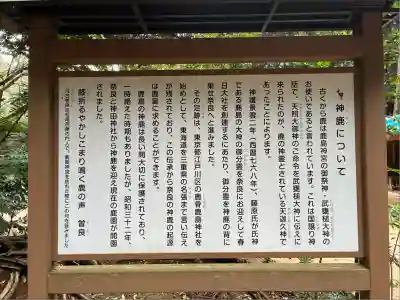 神鹿について
古くから鹿は鹿島神宮の御祭神・武甕槌大神の
お使いであると言われています。これは国譲り神
話で、天照大御神のご命令を武甕槌大神に伝えに
来られたのが、鹿の神霊とされている天迦久神で
あったことによります。
神護景雲二年（西暦七六八年）、藤原氏が氏神
である鹿島の大神の御分霊を奈良にお迎えして春
日大社を創建するにあたり、御分霊を神鹿の背に
乗せ奈良へと進みました。
その足跡は、東京都江戸川区の鹿骨鹿島神社を
始めとして、東海道を三重県の名張まで言い伝え
が残されており、この伝承から奈良の神鹿の起源
は鹿島に求めることができます。
鹿島の神鹿は長い間大切に保護されており、
一時絶えた時期もありましたが、昭和三十二年、
奈良と神田神社から神鹿を迎え現在の鹿園が開園
されました。
膝折るやかしこまり鳴く鹿の声　曽良